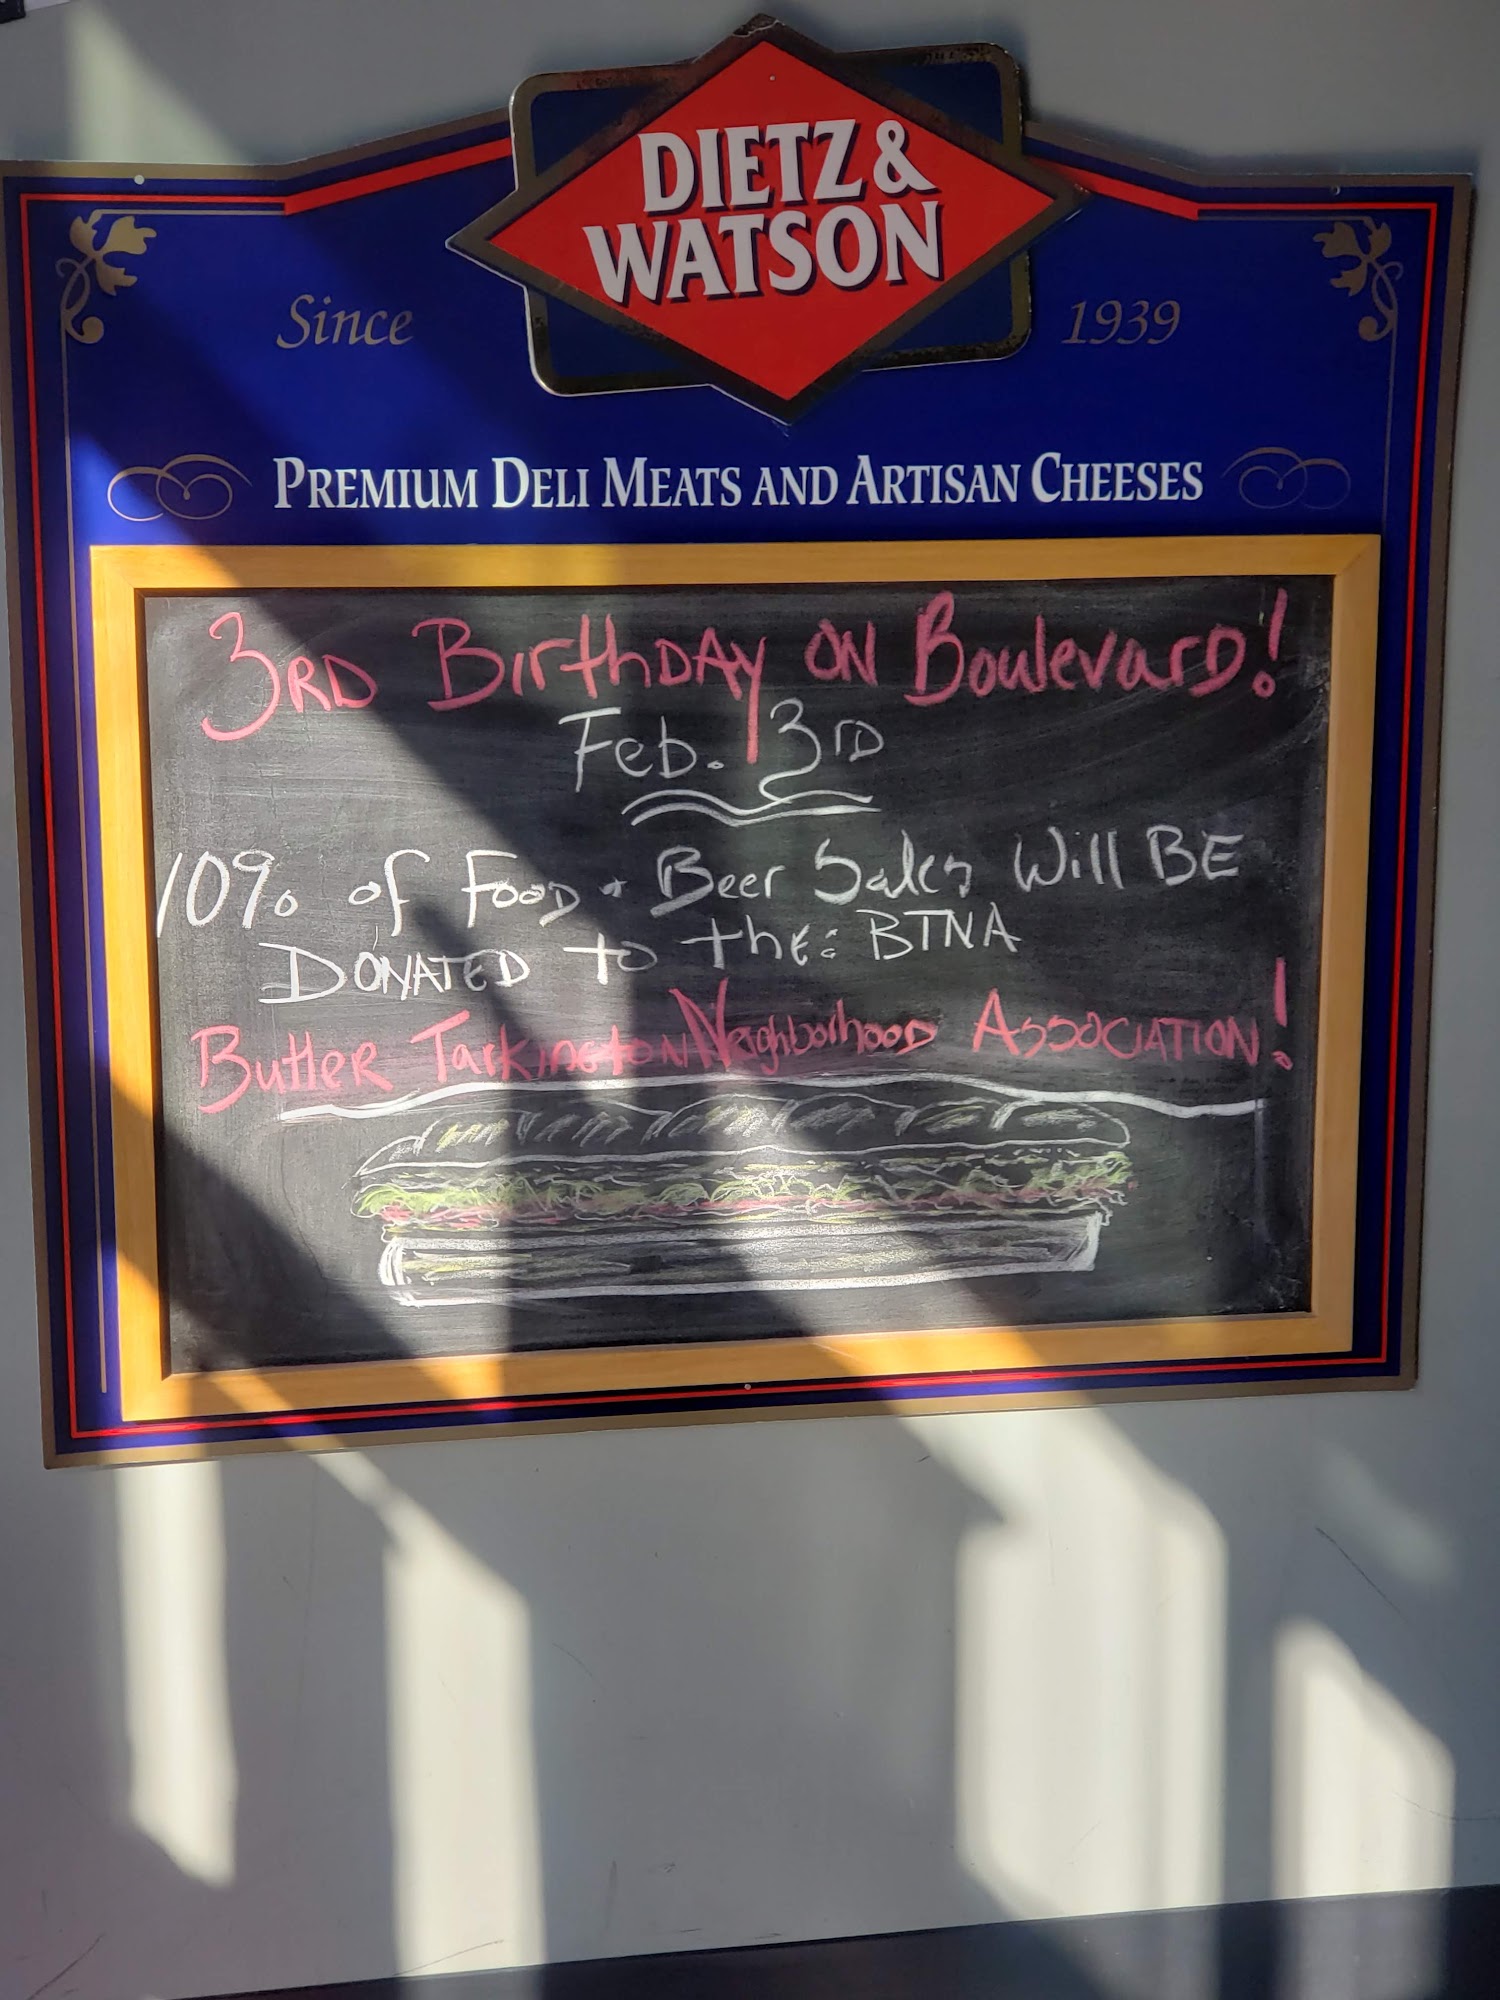 DIETZ &
WATSON
Since 1939
PREMIUM DELI MEATS AND ARTISAN CHEESES
3RD BirthDAy ON BoulevarD!
Feb. 3RD
10% of FooD + Beer Sales Will BE
DONATED to the: BTNA
Butler TarkingtoN NeighborhooD ASSOCIATION!